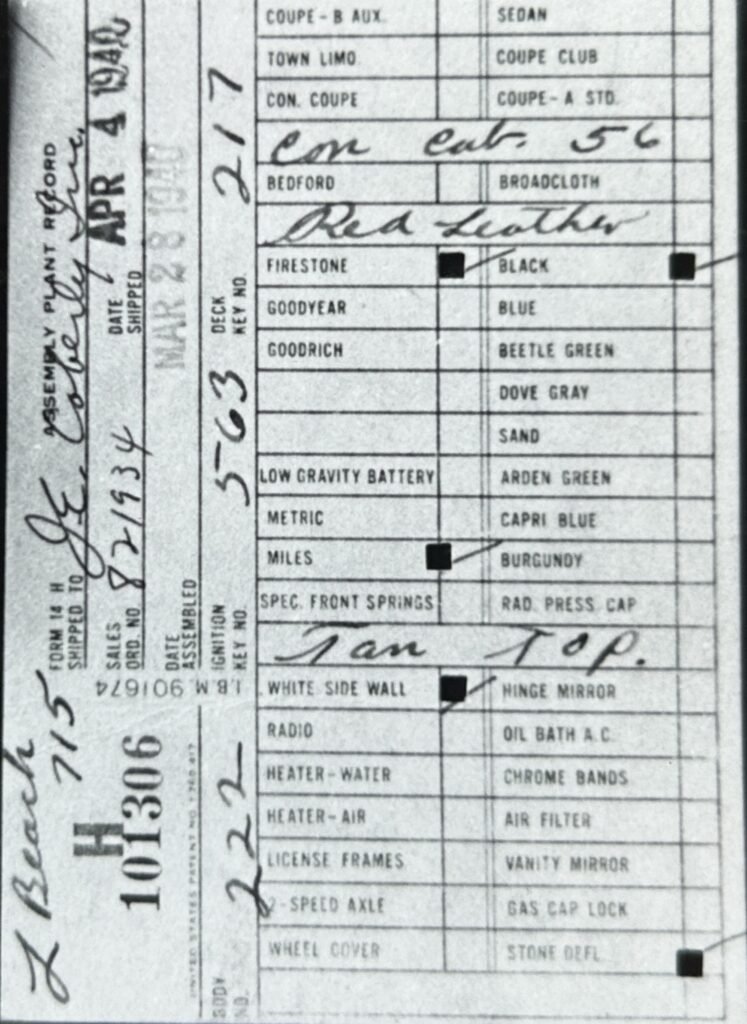 COUPE - B AUX. SEDAN
TOWN LIMO. COUPE CLUB
CON. COUPE COUPE - A STD.
Con Cab. 56
BEDFORD BROADCLOTH
Red Leather
FIRESTONE BLACK
GOODYEAR BLUE
GOODRICH BEETLE GREEN
DOVE GRAY
SAND
LOW GRAVITY BATTERY ARDEN GREEN
METRIC CAPRI BLUE
MILES BURGUNDY
SPEC. FRONT SPRINGS RAD. PRESS CAP
Tan Top.
WHITE SIDE WALL HINGE MIRROR
RADIO OIL BATH A.C.
HEATER - WATER CHROME BANDS
HEATER - AIR AIR FILTER
LICENSE FRAMES VANITY MIRROR
2-SPEED AXLE GAS CAP LOCK
WHEEL COVER STONE DEFL.
L Beach 715
H
101306
FORM 14 H ASSEMBLY PLANT RECORD
SHIPPED TO J.E. Coberly Inc.
SALES ORD. NO. 821934 DATE SHIPPED APR 4 1940
DATE ASSEMBLED MAR 28 1940
BODY NO. 222 IGNITION KEY NO. 563 DECK KEY NO. 217
I.B.M. 901674
UNITED STATES PATENT NO.